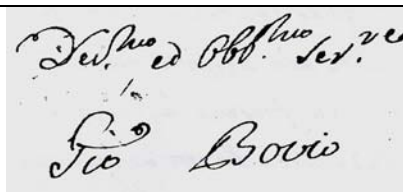 Dev.mo ed Obb.mo Ser.re
Gio Bovio